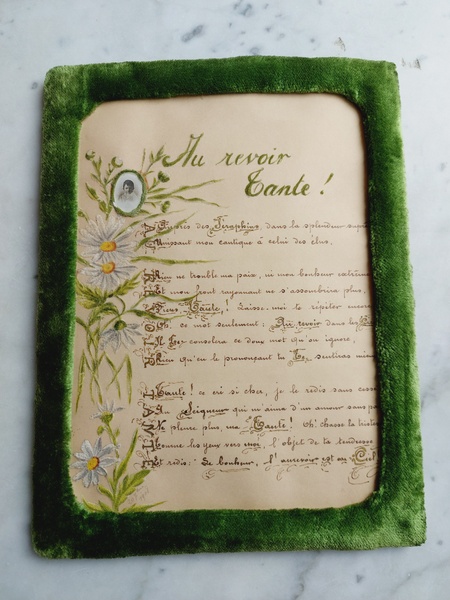 Au revoir
Tante !
Auprès des Séraphins, dans la splendeur
Unissant mon cantique à celui des élus,
Rien ne trouble ma paix, ni mon bonheur extrême
Et mon front rayonnant ne s'assombrira plus,
Viens, Tante, ! Laisse-moi te répéter encore
Oh, ce mot seulement : Au revoir dans les
Il consolera ce doux mot qu'on ignore,
Rien qu'en le prononçant tu sentiras
Tante ! ce cri si cher, je le redis sans cesse
Au Seigneur qui m'aime d'un amour sans
Ne pleure plus, ma Tante ! Oh! chasse la
Tourne les yeux vers moi, l'objet de ta tendresse
Et redis : Le bonheur, l'aurevoir est au Ciel
AU REVOIR TANTE